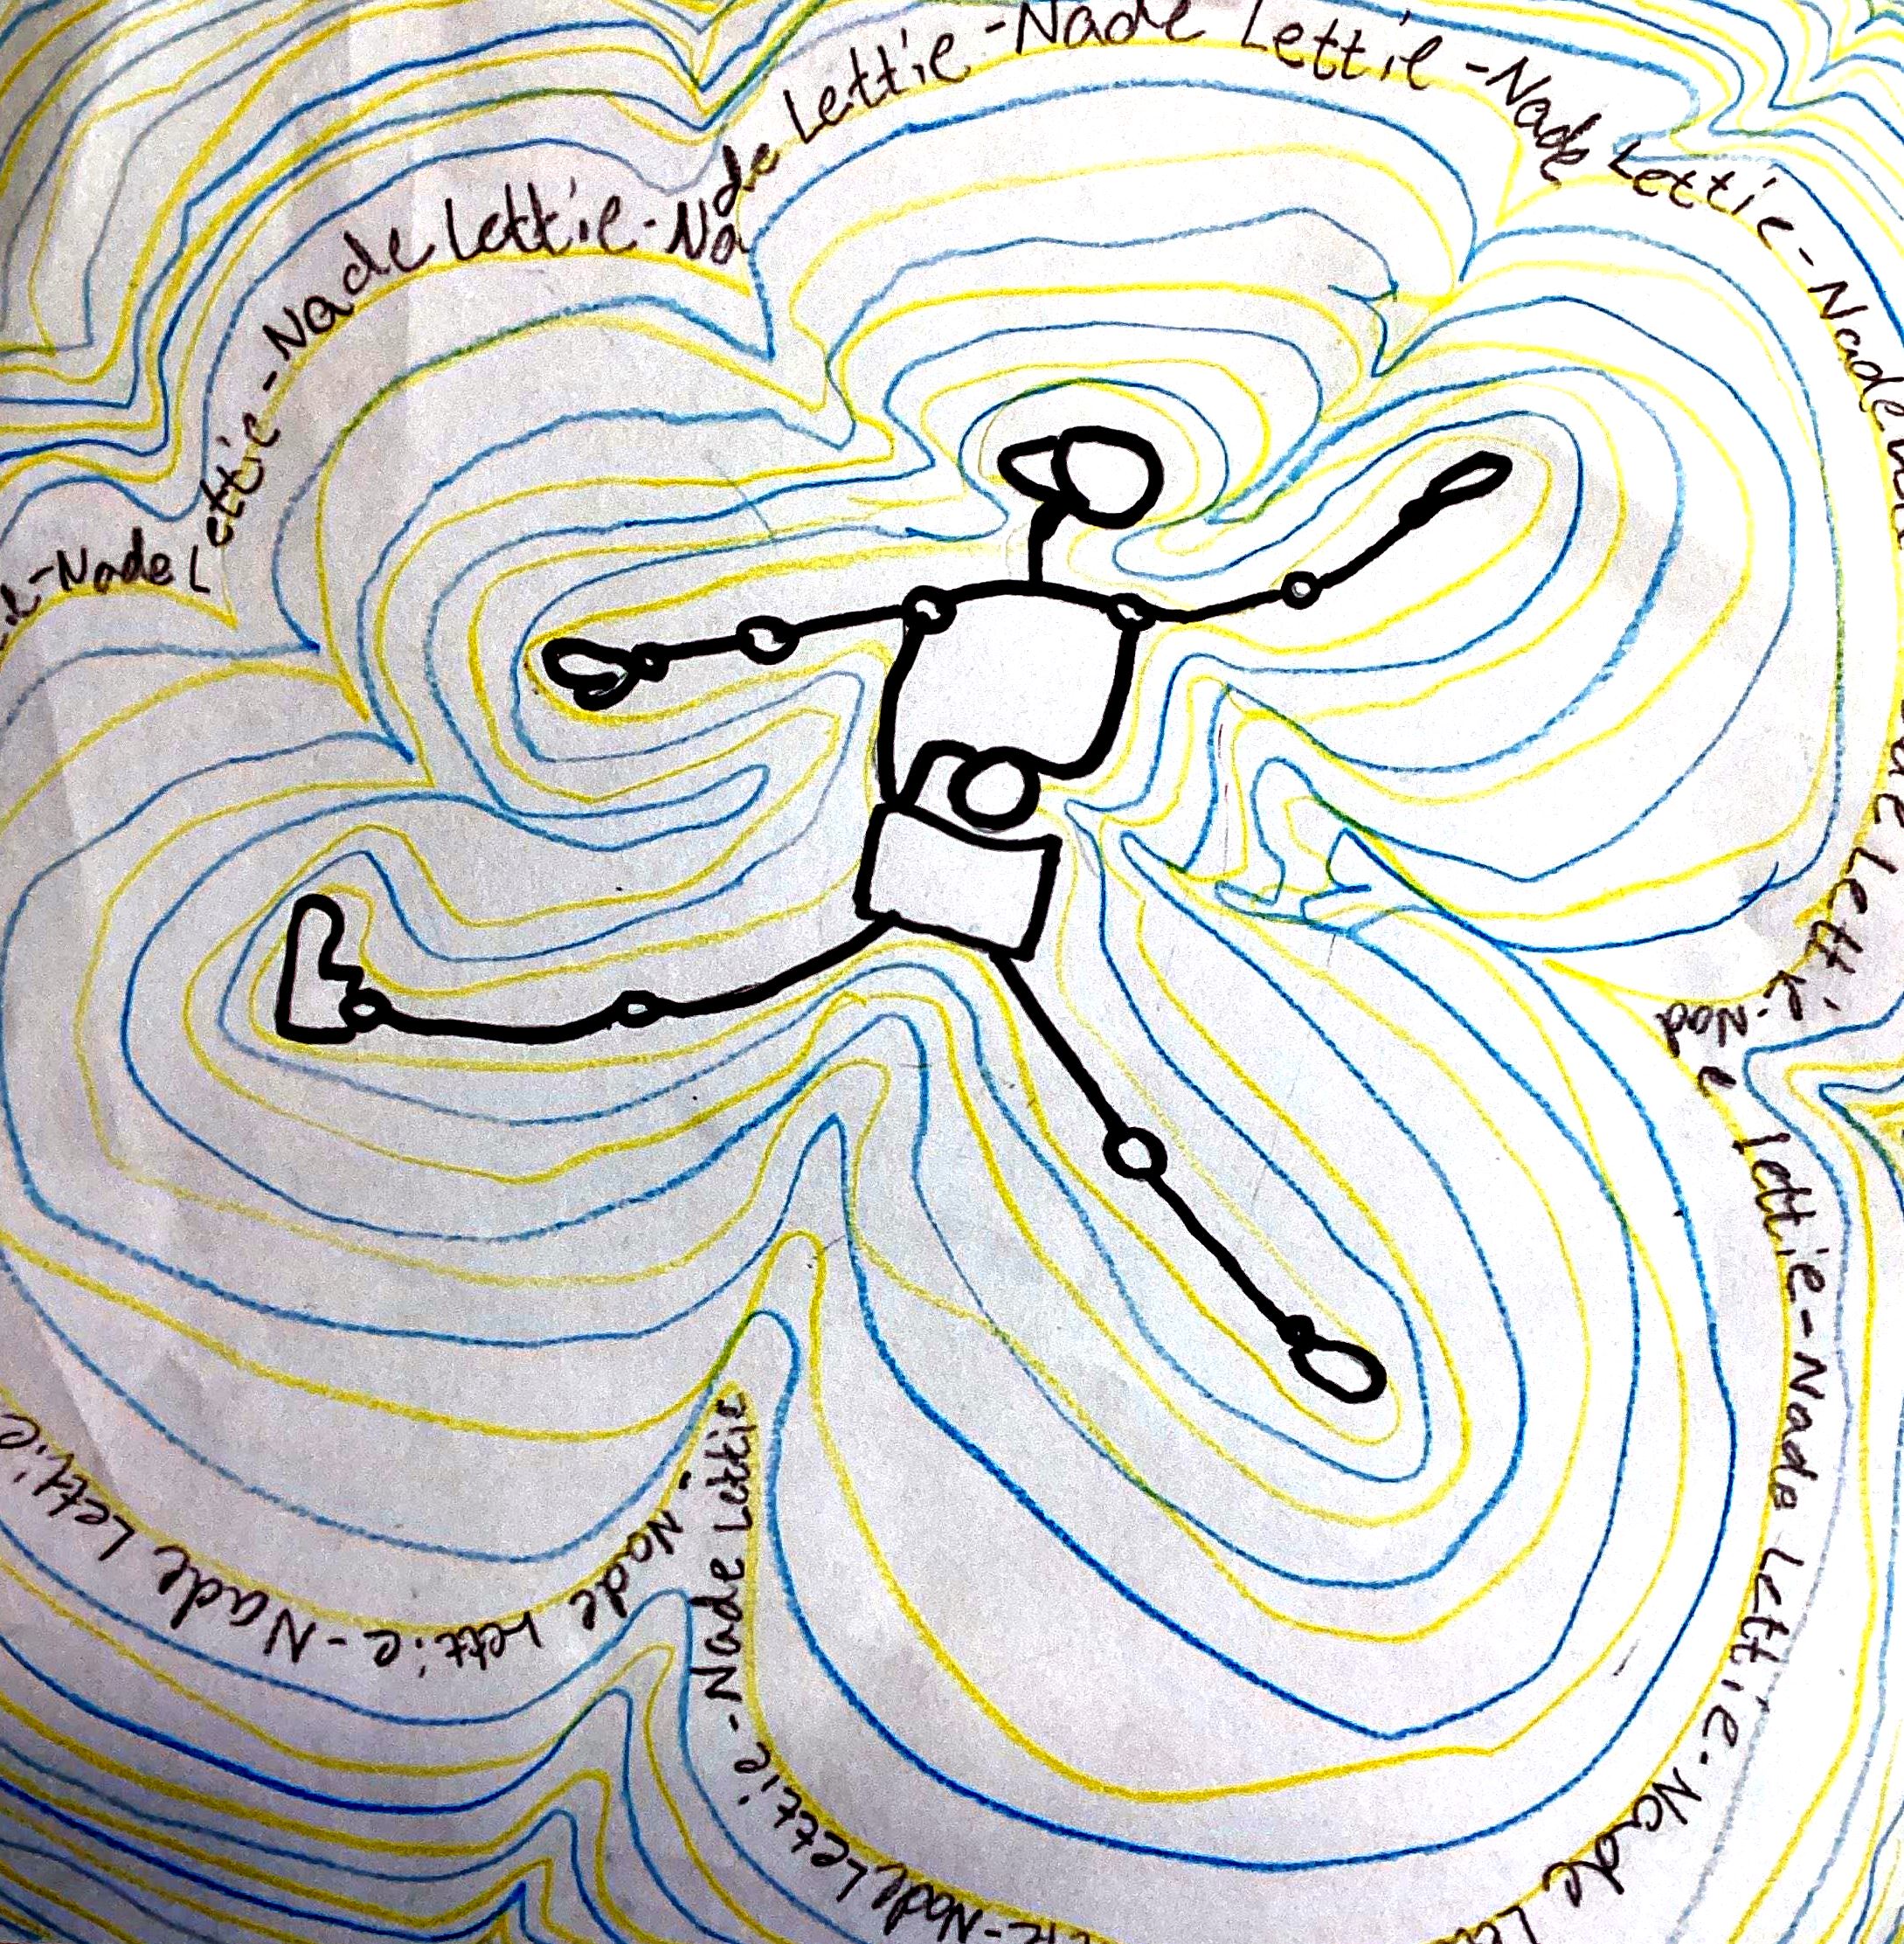 -Nade Lettie-Nade Lettie-Nade Lettie-Nade Lettie-Nade Lettie-Nade
Lettie-Nade Lettie-Nade Lettie-Nade Le
Nade Lettie-Nade Lettie-Nade
Lettie-Nade Lettie-Nade Lettie